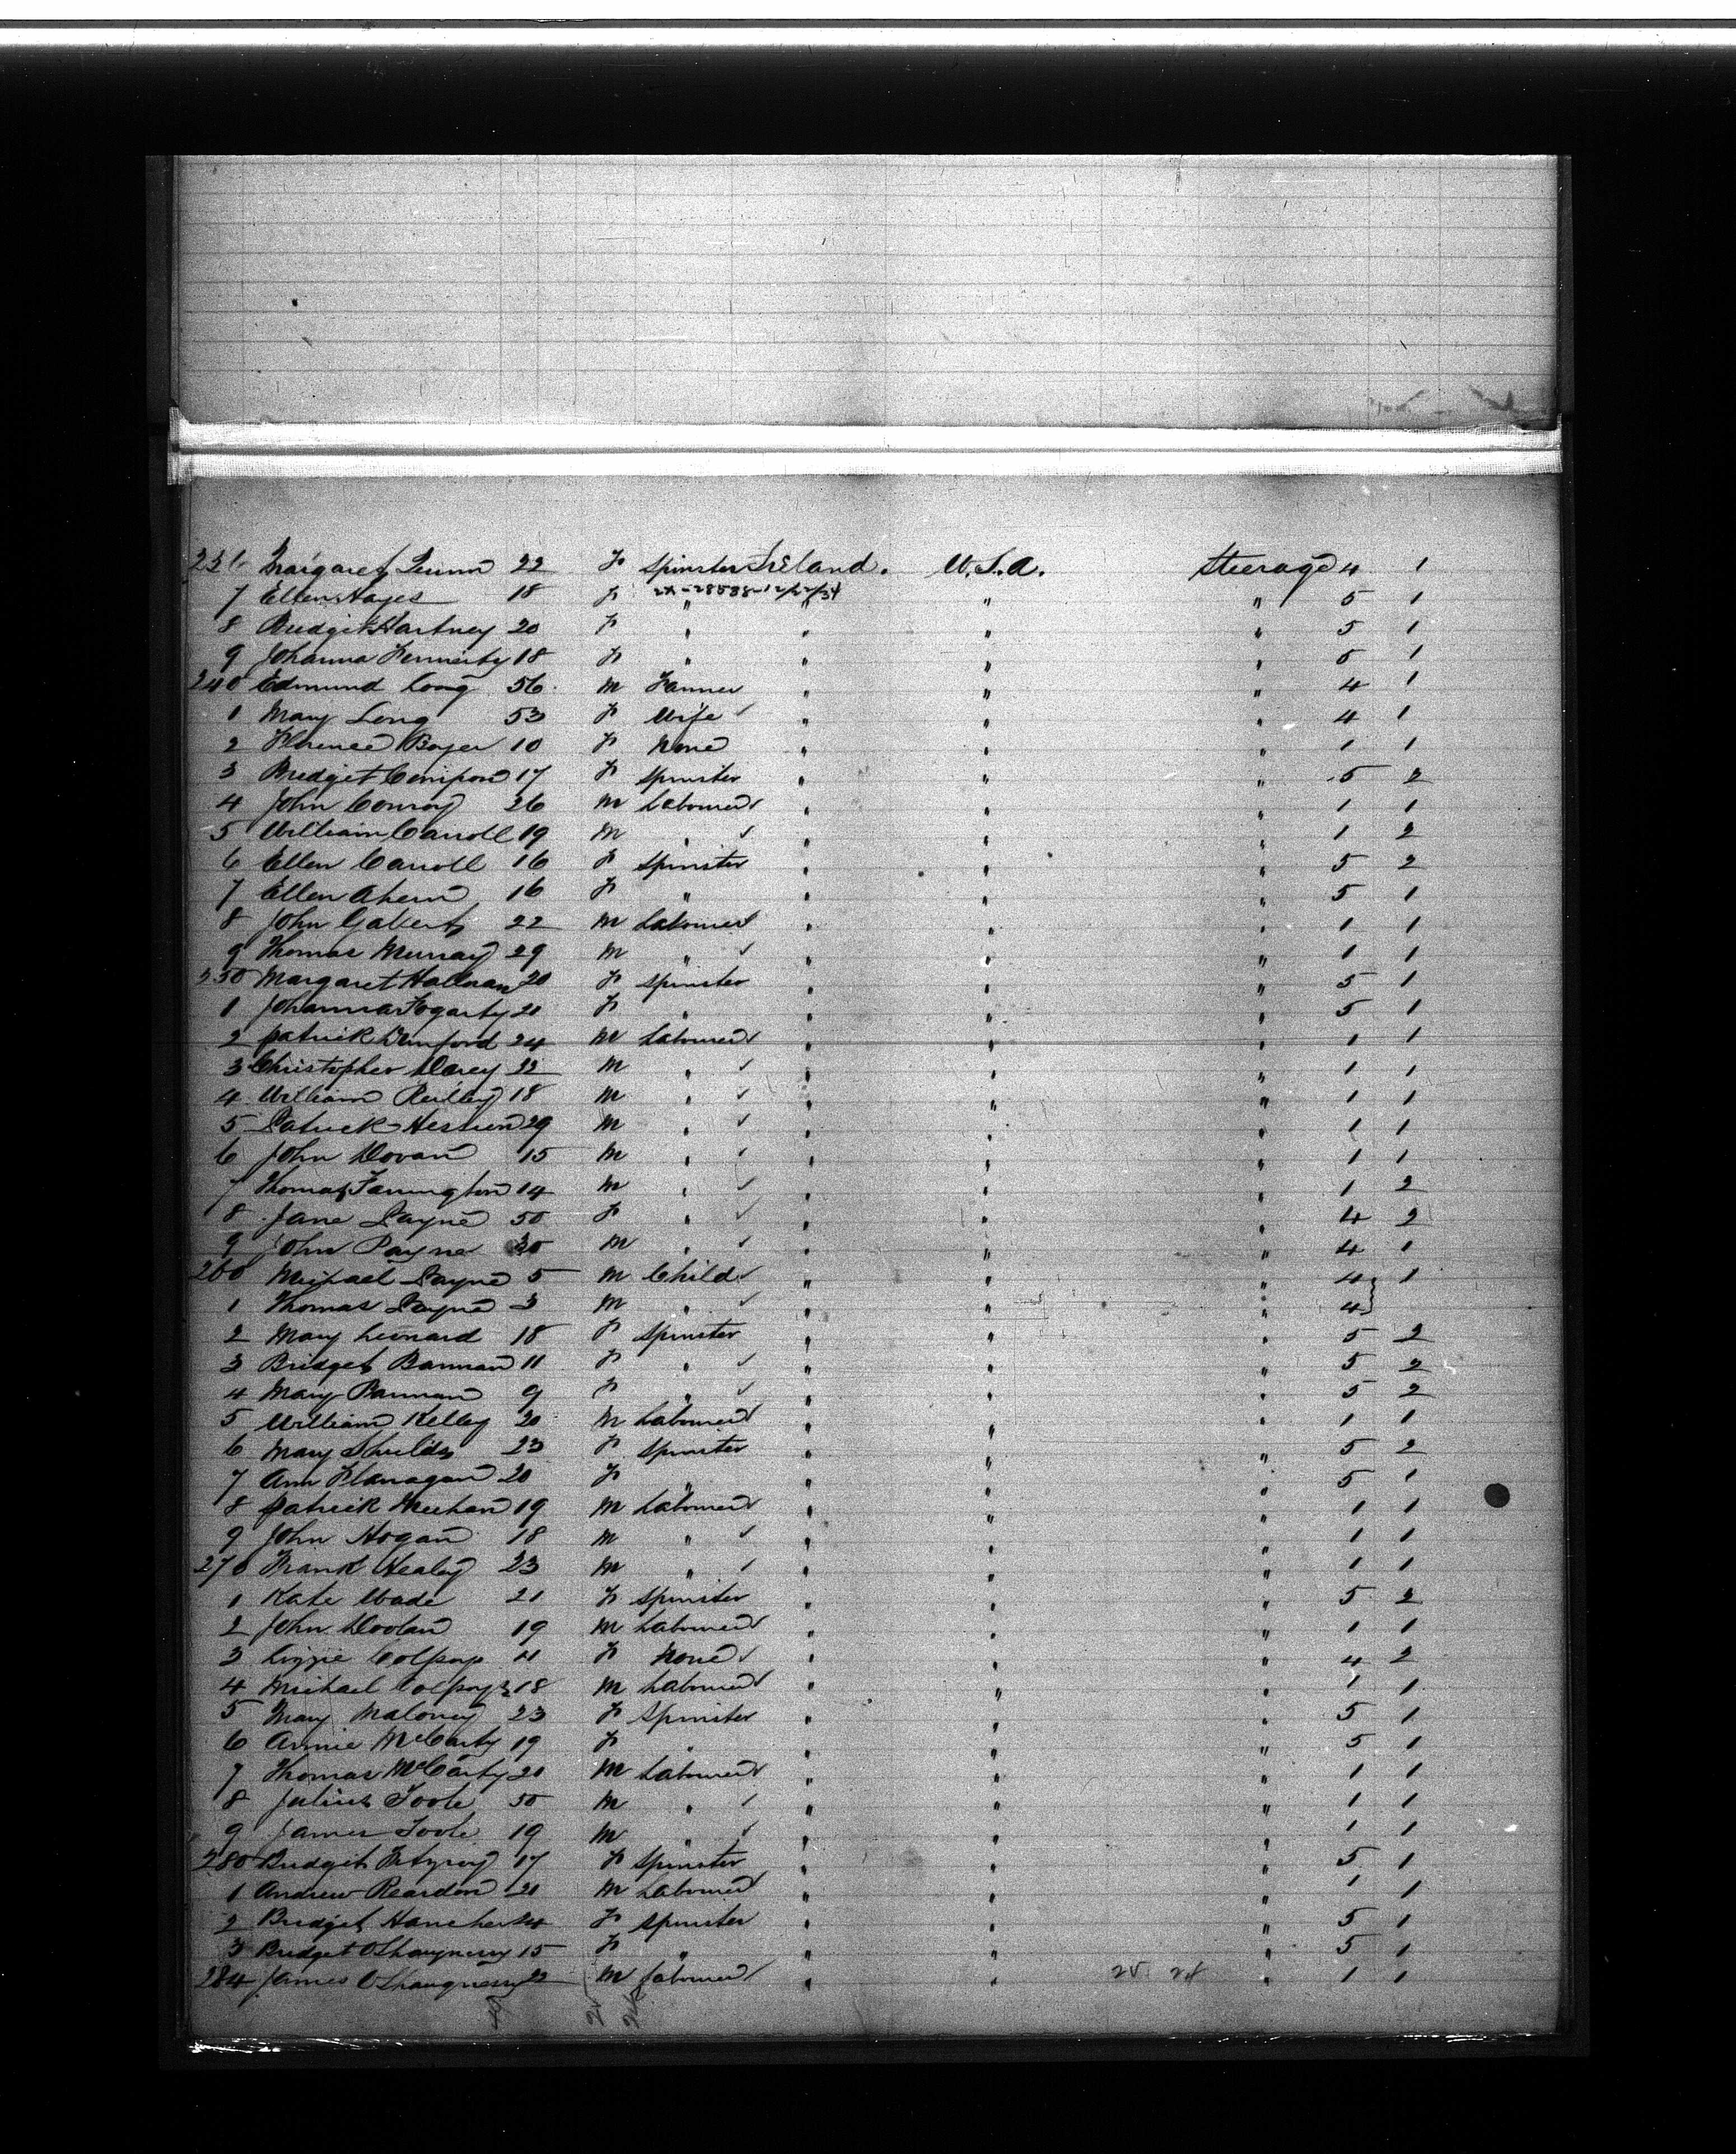 236 Margaret Quinn 22 F Spinster Ireland. U.S.A. Steerage 4 1
7 Ellen Hayes 18 F " 2X-28588-12/22/34 " " 5 1
8 Bridget Hartney 20 F " " " " 5 1
9 Johanna Fennerty 18 F " " " " 5 1
240 Edmund Long 56 M Farmer " " " 4 1
1 Mary Long 53 F Wife " " " 4 1
2 Florence Boyer 10 F None " " " 1 1
3 Bridget 17 F Spinster " " " 5 2
4 John Conroy 26 M Labourer " " " 1 1
5 William Carroll 19 M " " " " 1 2
6 Ellen Carroll 16 F Spinster " " " 5 2
7 Ellen Ahern 16 F " " " " 5 1
8 John 22 M Labourer " " " 1 1
9 Thomas Murray 29 M " " " " 1 1
250 Margaret Hallinan 20 F Spinster " " " 5 1
1 Johanna Fogarty 20 F " " " " 5 1
2 Patrick Dunford 24 M Labourer " " " 1 1
3 Christopher Darcy 22 M " " " " 1 1
4 William Reilley 18 M " " " " 1 1
5 Patrick Hession 29 M " " " " 1 1
6 John Doran 15 M " " " " 1 1
7 Thomas Farrington 14 M " " " " 1 2
8 Jane Payne 50 F " " " " 4 2
9 John Payne M " " " " 4 1
260 Michael Payne 5 M Child " " " 4 1
1 Thomas Payne 3 M " " " " 4
2 Mary Leonard 18 F Spinster " " " 5 2
3 Bridget Bannan 11 F " " " " 5 2
4 Mary Bannan 9 F " " " " 5 2
5 William Kelley 20 M Labourer " " " 1 1
6 Mary Shields 23 F Spinster " " " 5 2
7 Ann Flanagan 20 F " " " " 5 1
8 Patrick Meehan 19 M Labourer " " " 1 1
9 John Hogan 18 M " " " " 1 1
270 Frank Healey 23 M " " " " 1 1
1 Kate Wade 21 F Spinster " " " 5 2
2 John Doolan 19 M Labourer " " " 1 1
3 Lizzie Colpoys 11 F None " " " 4 2
4 Michael Colpoys 18 M Labourer " " " 1 1
5 Mary Maloney 23 F Spinster " " " 5 1
6 Annie McCarty 19 F " " " " 5 1
7 Thomas McCarty 20 M Labourer " " " 1 1
8 Julius Toole 50 M " " " " 1 1
9 James Toole 19 M " " " " 1 1
280 Bridget 17 F Spinster " " " 5 1
1 Andrew Reardon 20 M Labourer " " " 1 1
2 Bridget 24 F Spinster " " " 5 1
3 Bridget O'Shaugnessy 15 F " " " " 5 1
284 James O'Shaugnessy 22 M Labourer " " 25 24 " 1 1